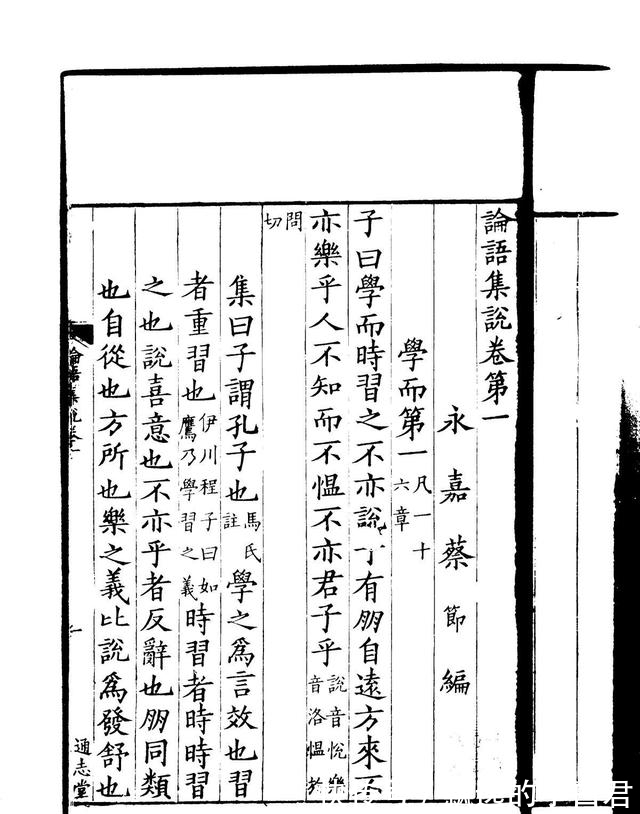 論語集說卷第一
永嘉蔡節編
學而第一凡一十六章
子曰學而時習之不亦說乎有朋自遠方來不
亦樂乎人不知而不愠不亦君子乎說音悅樂音洛愠於
問切
集曰子謂孔子也馬氏註學之爲言效也習
者重習也伊川程子曰如鷹乃學習之義時習者時時習
之也說喜意也不亦乎者反辭也朋同類
也自從也方所也樂之義比說爲發舒也
論語集說卷一
一
通志堂